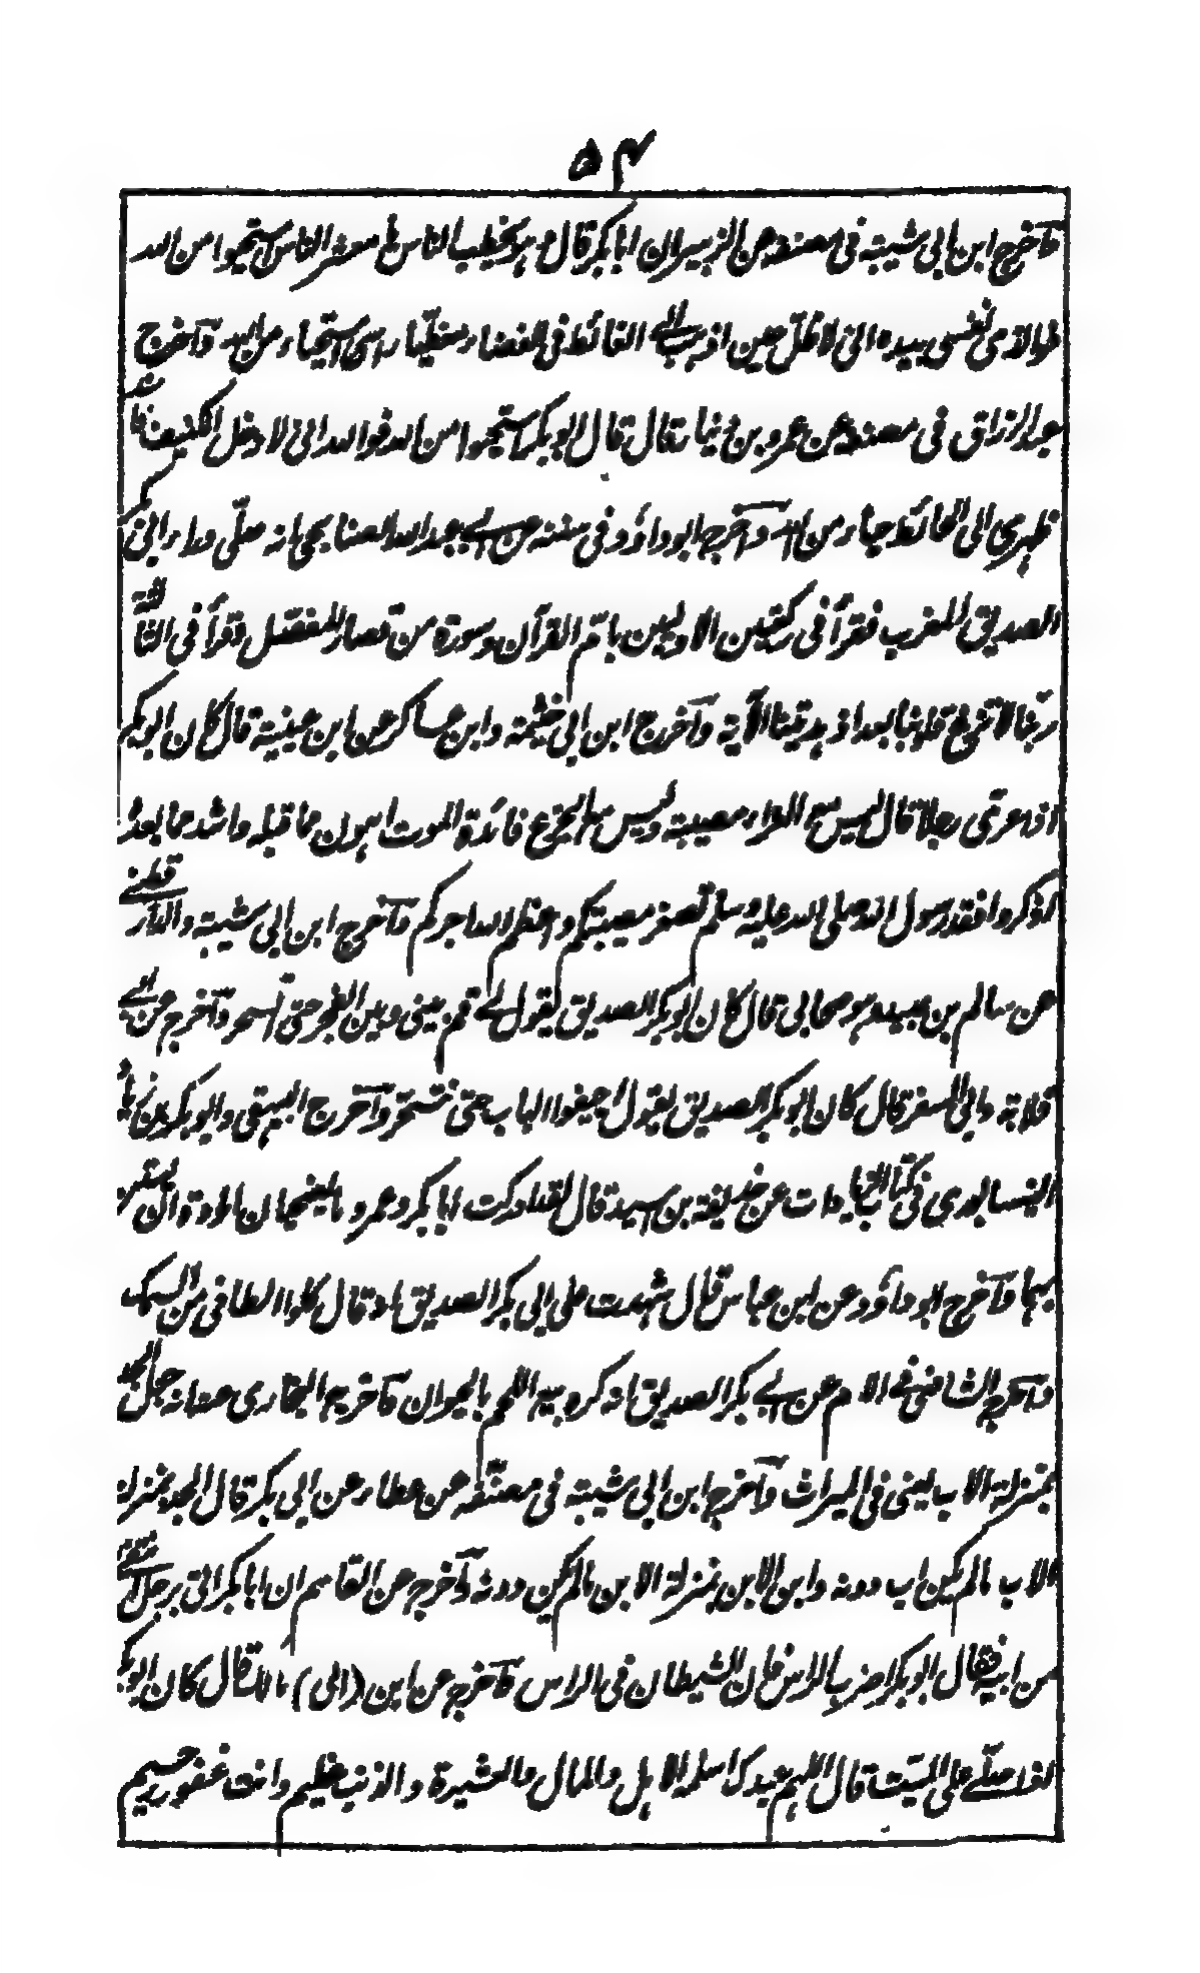 ۵۴
وآخرج ابن ابی شیبة فی مصنفه عن الزبیران ابابکر قال وہو یخطب الناس یا معشر الناس استحیوا من الله
فوالذی نفسی بیده انی لاظل حین اذہب الے الغائط فی الفضاء مغطیا راسی استحیاء من الله وآخرج
عبدالرزاق فی مصنفه عن عمرو بن دینار قال قال ابوبکر استحیوا من الله فوالله انی لادخل الکنیف فاسند
ظہری الی الحائط حیاء من الله وآخرج ابوداؤد فی سننه عن ابے عبدالله الصنابحی انه صلّی وراء ابی بکر
الصدیق المغرب فقرأ فی رکعتین الاولیین بام القرآن وسورة من قصار المفصل وقرأ فی الثالثة
ربنا لا تزغ قلوبنا بعد اذ ہدیتنا الآیة وآخرج ابن ابی خیثمة وابن عساکر عن ابن عیینة قال کان ابوبکر
اذا عزّی رجلا قال لیس مع العزاء مصیبة ولیس مع الجزع فائدة الموت اہون مما قبله واشد مما بعده
اذکروا فقد رسول الله صلی الله علیه وسلم تصغر مصیبتکم واعظم الله اجرکم وآخرج ابن ابی شیبة والدارقطنے
عن سالم بن عبید وہو صحابی قال کان ابوبکر الصدیق یقول لے قم بینی وبین الفجر حتی اتسحر وآخرج عن ابے
قلابة وابی السفر قال کان ابوبکر الصدیق یقول اجیفوا الباب حتی نتسحر وآخرج البیہقی وابوبکر بن زیاد
النیسابوری فی کتاب الزیادات عن حذیفة بن اسید قال لقد ادرکت ابابکر وعمر وما یضحیان ارادة ان یستن
بہما وآخرج ابوداؤد عن ابن عباس قال شہدت علی ابی بکر الصدیق انه قال کلوا الطافی من السمک
وآخرج الشافعی فے الام عن ابے بکر الصدیق انه کره بیع اللحم بالحیوان وآخرج البخاری عنه انه جعل الجد
بمنزلة الاب یعنی فی المیراث وآخرج ابن ابی شیبة فی مصنفه عن عطاء عن ابی بکر قال الجد بمنزلة
الاب مالم یکن اب دونه وابن الابن بمنزلة الابن مالم یکن ابن دونه وآخرج عن القاسم ان ابابکر اتی برجل انتفے
من ابیه فقال ابوبکر اضرب الراس فان الشیطان فی الراس وآخرج عن ابن (ابی) مالک قال کان ابوبکر
اذا صلّے علی المیت قال اللہم عبدک اسلمه الاہل والمال والعشیرة والذنب عظیم وانت غفور رحیم